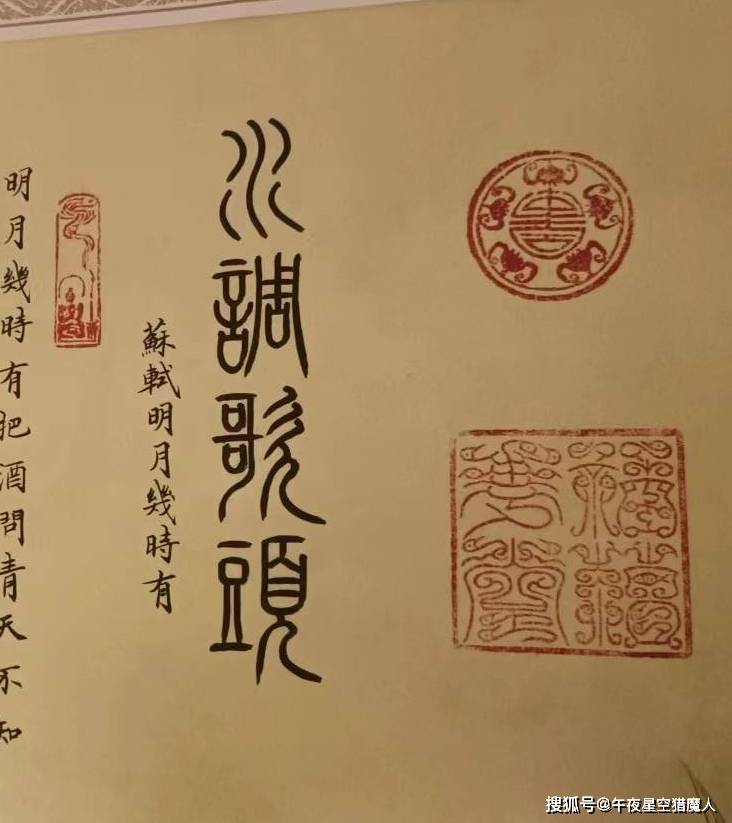 水調歌頭
蘇軾明月幾時有
明月幾時有把酒問青天不知
搜狐号@午夜星空猎魔人